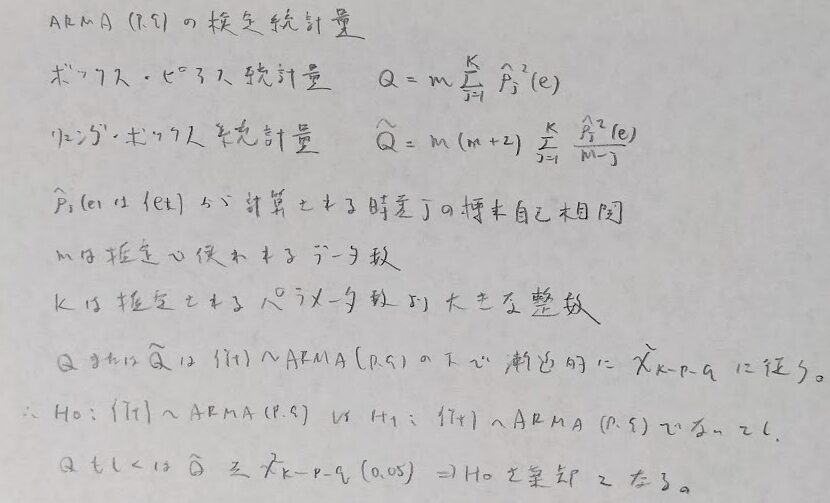 ARMA (P.q) の検定統計量
ボックス・ピアス統計量 Q = m Σ_{j=1}^{K} ρ̂_j²(e)
リュング・ボックス統計量 Q̃ = m(m+2) Σ_{j=1}^{K} ρ̂_j²(e)/(m-j)
ρ̂_j(e)は{et}から計算される時差jの標本自己相関
mは推定に使われるデータ数
Kは推定されるパラメータ数より大きな整数
QまたはQ̃は{Yt}~ARMA(P.q)の下で漸近的にχ²_{K-P-q}に従う。
∴ H₀:{Yt}~ARMA(P.q) vs H₁:{Yt}~ARMA(P.q)でないとし、
QもしくはQ̃ ≧ χ²_{K-P-q}(0.05) ⇒ H₀を棄却となる。